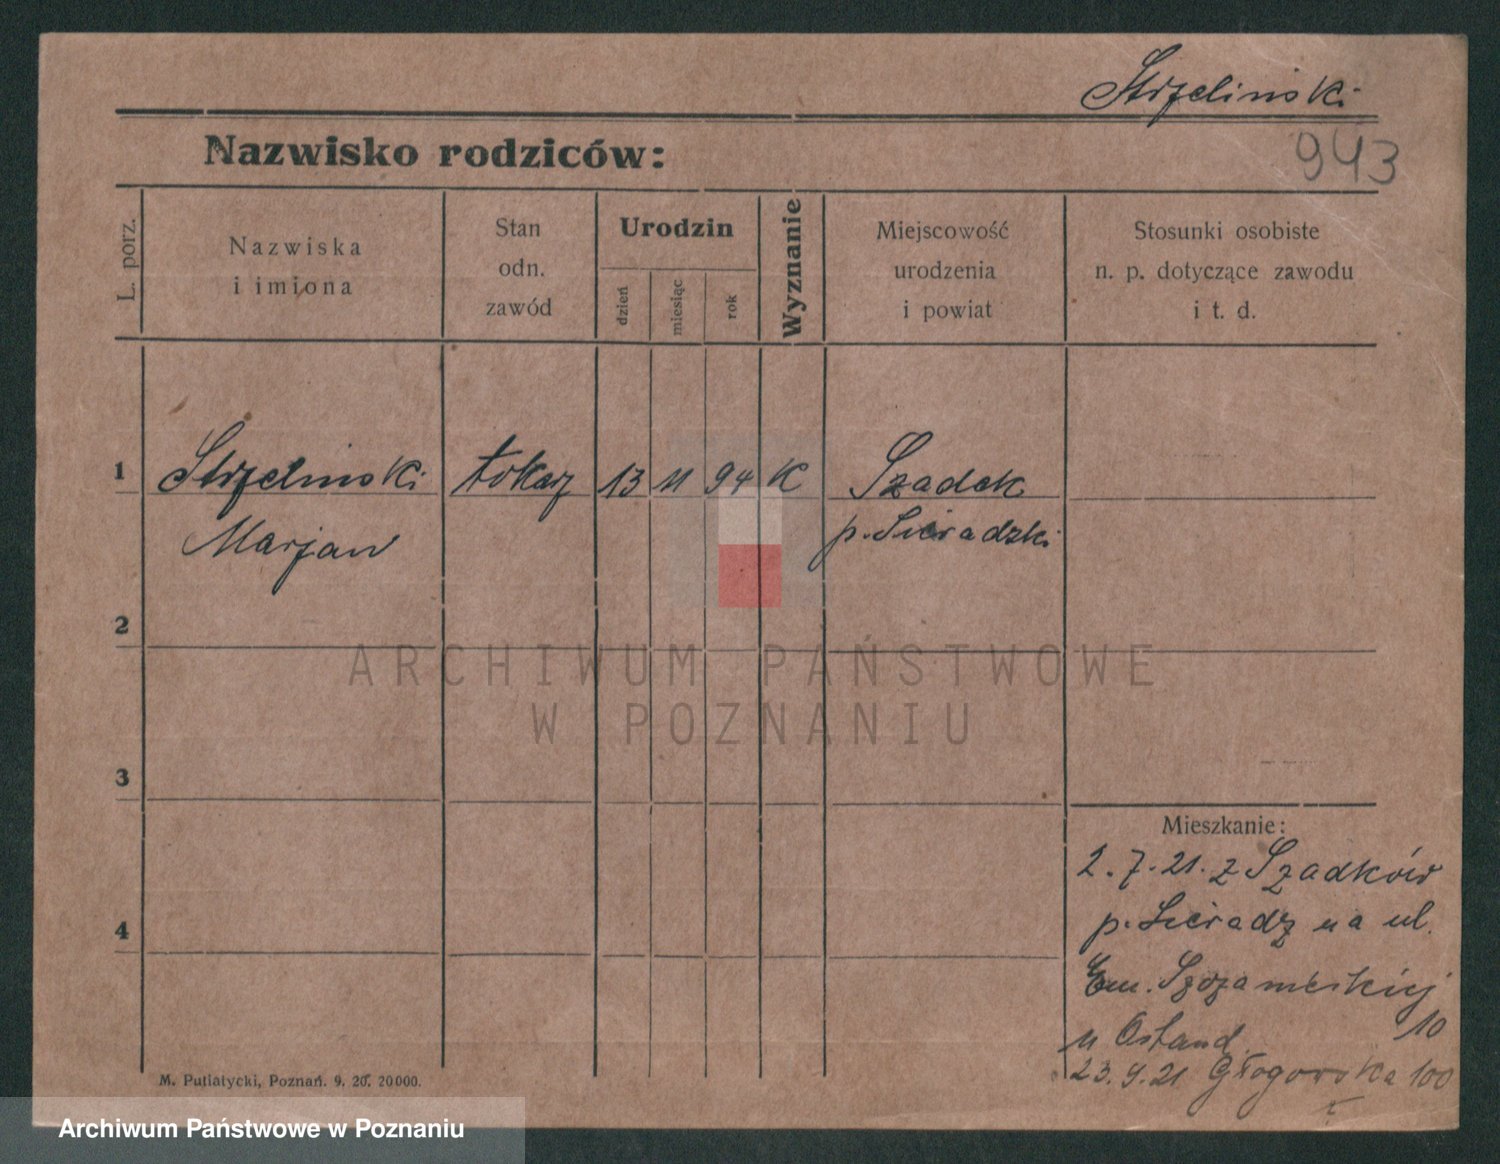 Strzeliński
Nazwisko rodziców:
943
L. porz.
Nazwiska
i imiona
Stan
odn.
zawód
Urodzin
dzień
miesiąc
rok
Wyznanie
Miejscowość
urodzenia
i powiat
Stosunki osobiste
n. p. dotyczące zawodu
i t. d.
1 Strzeliński tokarz 13 11 94 K Szadek
Marjan p. Sieradzki
2
ARCHIWUM PAŃSTWOWE
W POZNANIU
3
Mieszkanie:
2.7.21. z Szadków
p. Sieradz na ul.
4
Em. Sczanieckiej
10
u Ostand
23.9.21 Głogowska 100
M. Putiatycki, Poznań. 9. 20. 20000.
Archiwum Państwowe w Poznaniu